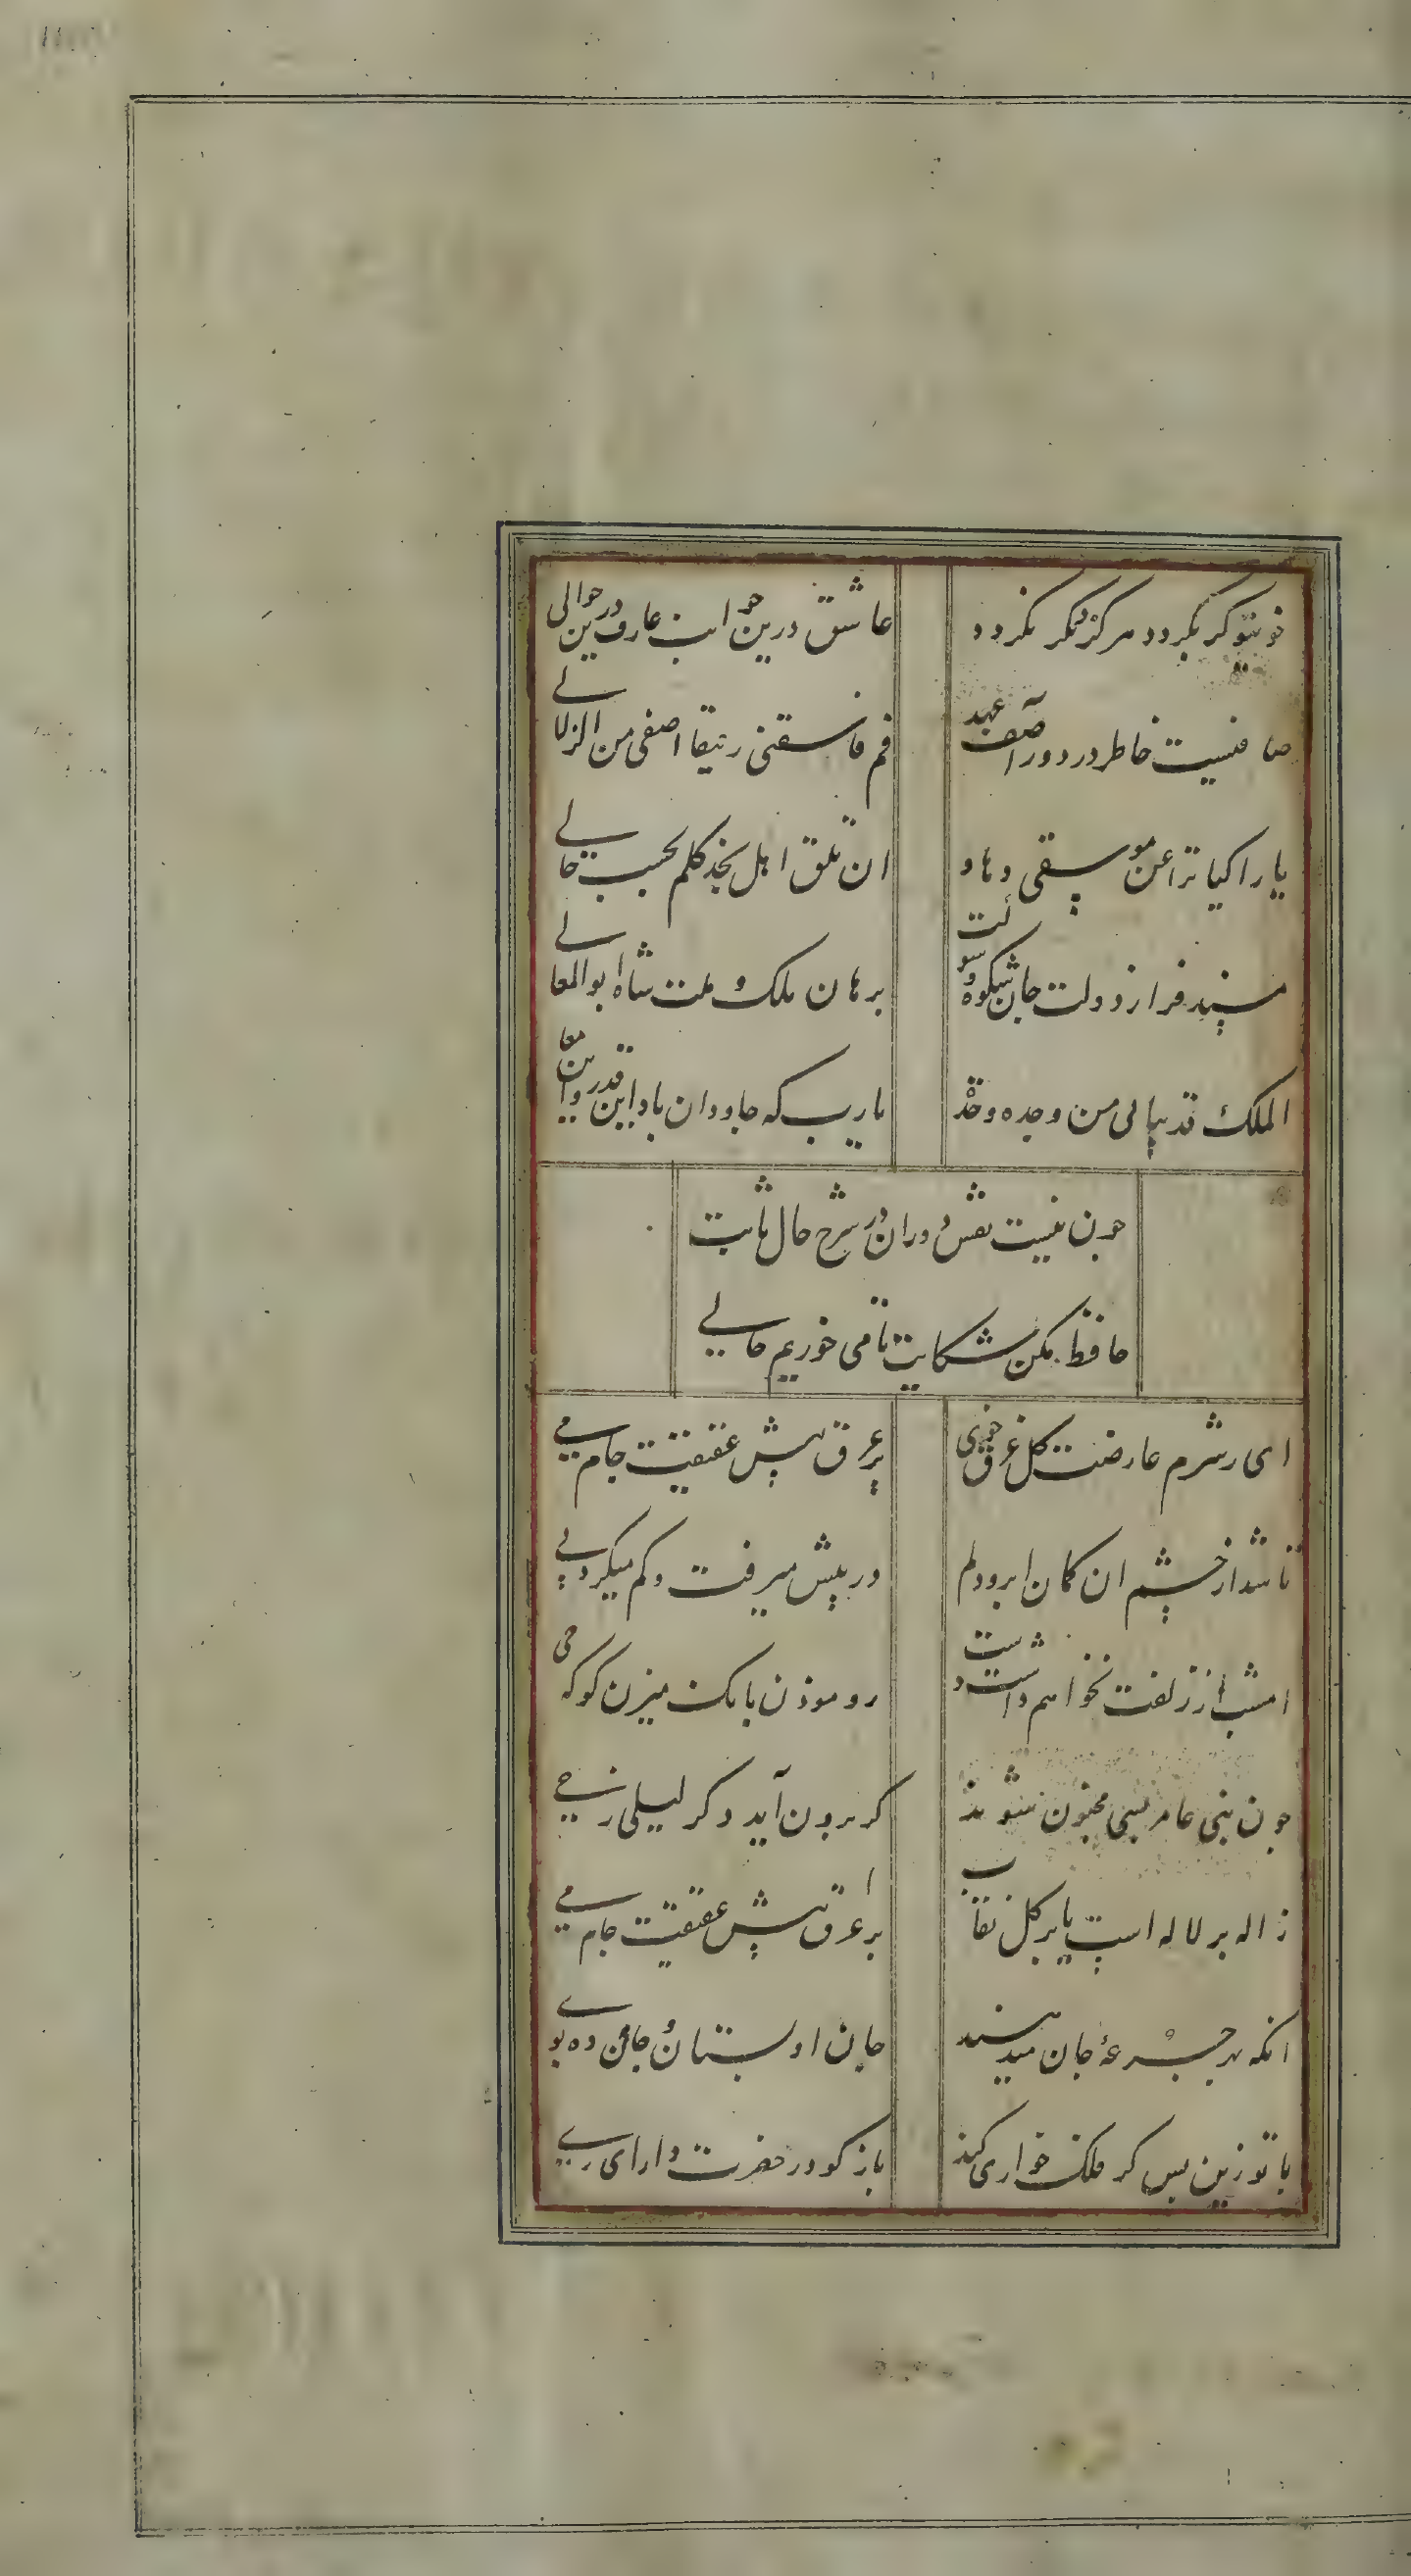 خونتو کر نکردد هرکز دکر نکردد
عاشق درین حواب عارف درین حوالی
صافنیست خاطر در دور آصف عهد
قم فاسقنی رحیقا اصفی من الزلالے
یا راکبا تراعن موسقی وهاو
ان تلق اهل نجد کلم بحسب حالے
مسند فراز دولت جان شکوه و سولت
برهان ملک و ملت شاه ابوالمعالے
الملک قد تباهی من وجده وجده
یارب که جاودان باد این قدر واین معا
جون نیست نقش دوران در شرح حال ثابت
حافظ مکن شکایت تا می خوریم حالے
ای زشرم عارضت کل غرق خوی
بر عرق پیش عقیقت جام مے
تا شد از چشم ان کمان ابرو دلم
در پیش میرفت و کم میکرد پے
امشب از زلفت نخواهم داشت دست
رو موذن بانک میزن کو که حی
جون بنی عامر بسی مجنون شوند
کر برون آید دکر لیلی زحے
ژاله بر لاله است یا بر کل نقاب
یا عرق پیش عقیقت جام مے
انکه بهر جرعهٔ جان میدهند
جان او بستان و جامی ده بوے
با تو زین پس کر فلک خواری کند
باز کو در حضرت دارای رے